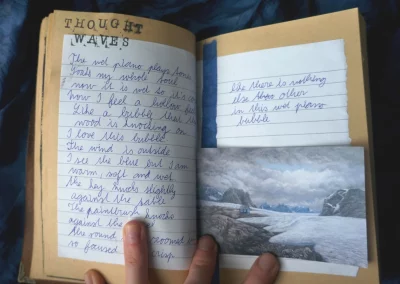 THOUGHT
WAVES
The wet piano plays tones
Feels my whole soul
now it is wet so it's
how I feel a hollow
Like a bubble that the
mood is knocking on
I love this bubble
The wind is outside
I see the blue but I am
warm, soft and wet
the key knocks slightly
against the table
The paintbrush knocks
against the
the sound zoomed
so focused crisp.
like there is nothing
else than other
in this wet piano
bubble